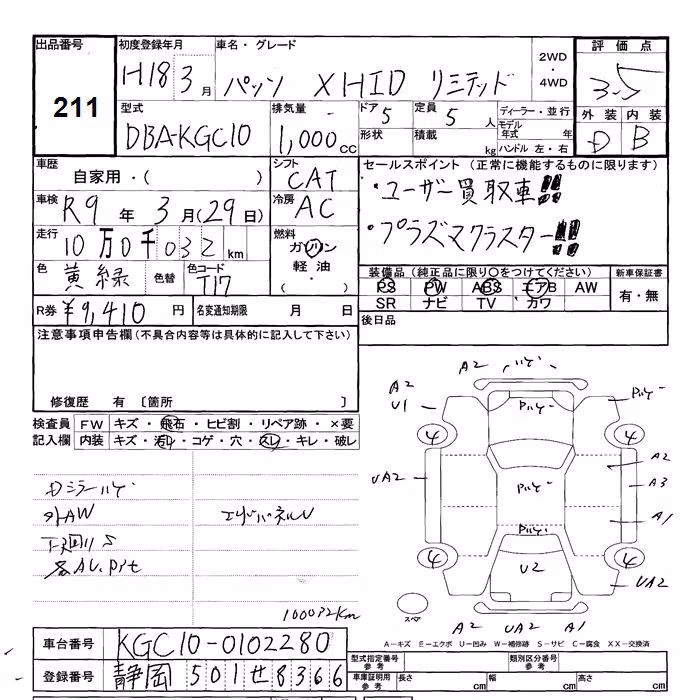 出品番号 初度登録年月 車名・グレード 2WD・4WD 評価点
211 H18 3月 パッソ XHID リミテッド 3.5
型式 排気量 ドア 5 定員 5人 ディーラー・並行 外装 内装
DBA-KGC10 1,000cc 形状 積載 kg モデル年式 年 ハンドル 左・右 D B
車歴 自家用・( ) シフト CAT セールスポイント (正常に機能するものに限ります)
車検 R9年 3月(29日) 冷房 AC ・ユーザー買取車!!
走行 10万0千032km 燃料 ガソリン・軽油・( ) ・プラズマクラスター!!
色 黄緑 色替 色コード T17 装備品 (純正品に限り○をつけてください) 新車保証書
PS PW ABS エアB AW 有・無
R券 ¥9,410円 名変通知期限 月 日 SR ナビ TV カワ
注意事項申告欄(不具合内容等は具体的に記入して下さい) 後日品
修復歴 有 〔箇所 〕
検査員 FW キズ・飛石・ヒビ割・リペア跡・×要
記入欄 内装 キズ・汚レ・コゲ・穴・スレ・キレ・破レ
A2 ハゲ
A2 U1 Pハゲー Pハゲー
4 4
Dミラーハゲ UA2 Pハゲー A2 A3
外AW エンドパネルU A1
下廻りS
4 4
U2 UA2
100032Km スペア A2 UA2 A1
車台番号 KGC10-0102280 A－キズ E－エクボ U－凹み W－補修跡 S－サビ C－腐食 XX－交換済
型式指定番号 参考 類別区分番号 参考
登録番号 静岡 501せ8366 車庫証明用 参考 長さ cm 幅 cm 高さ cm